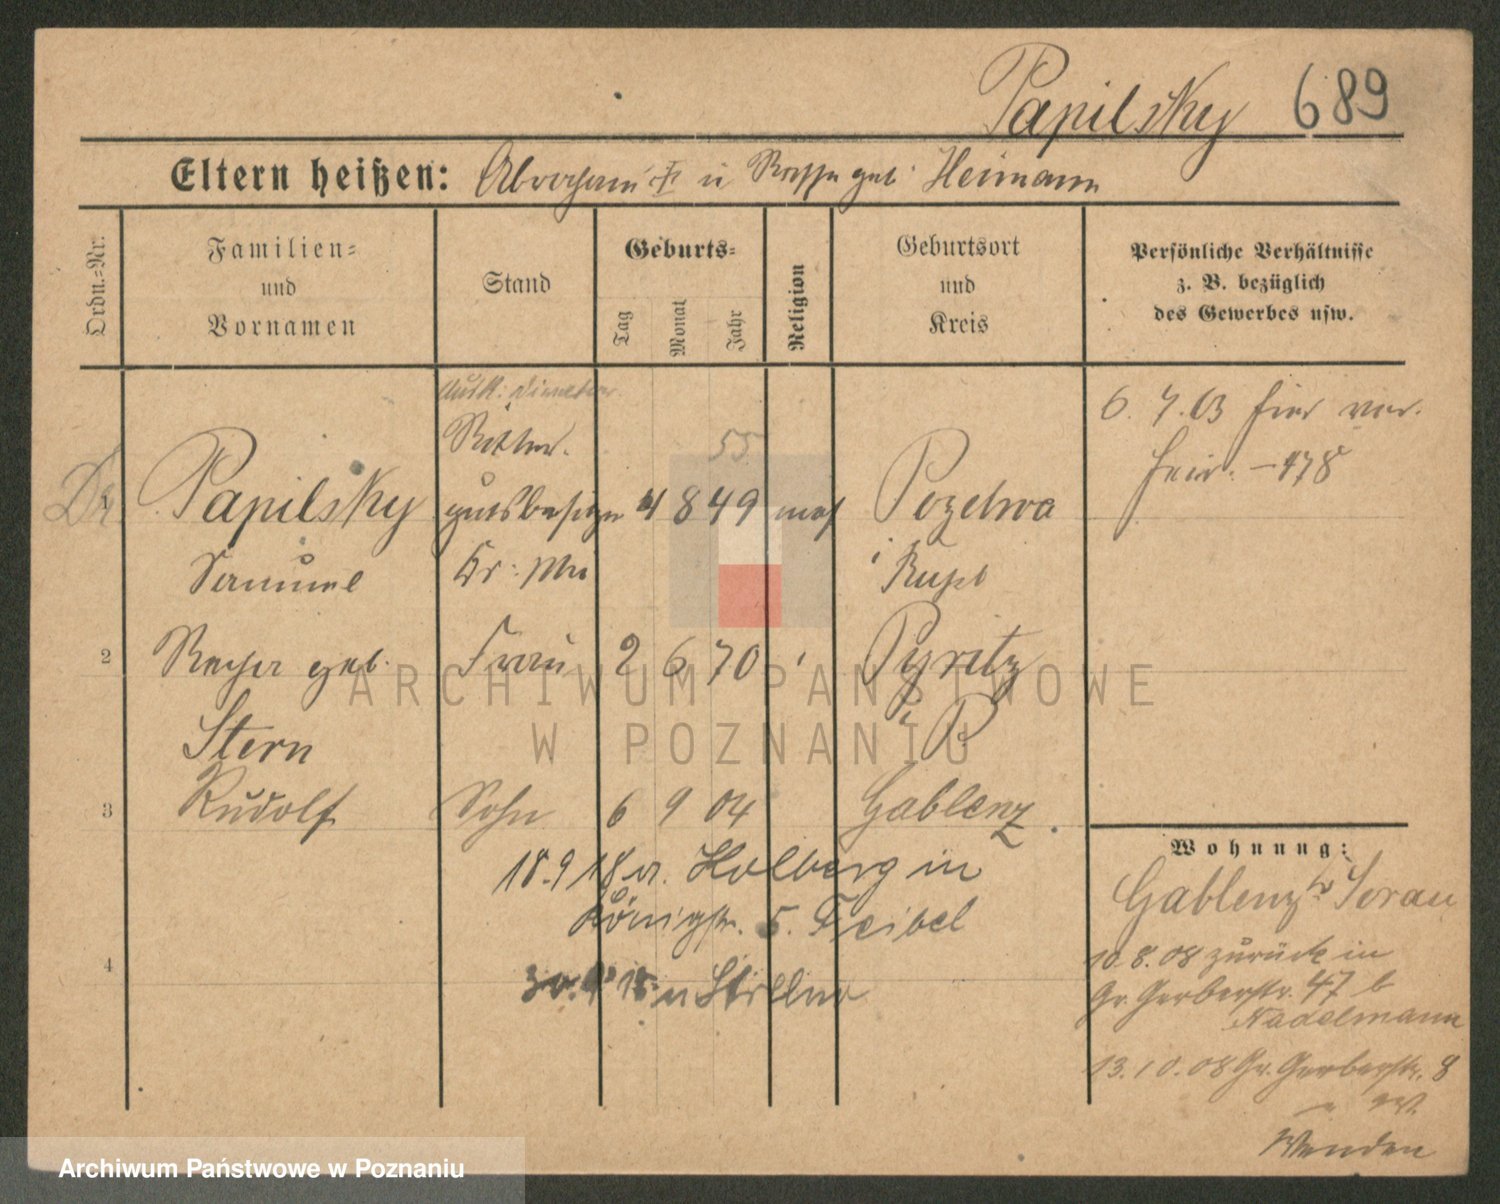 Papilsky 689
Eltern heißen: Abraham † u geb. Heimann
Ordn.-Nr.
Familien-
und
Vornamen
Stand
Geburts-
Tag
Monat
Jahr
Religion
Geburtsort
und
Kreis
Persönliche Verhältnisse
z. B. bezüglich
des Gewerbes usw.
Ritter-
55
6. 7. 03 hier ver-
heir. – 478
Dr. Papilsky gutsbesitzer 4 8 49 mos
Samuel
2 geb. Frau 2 6 70 Pyritz
Stern P.
3 Rudolf Sohn 6 9 04 Gablenz
18. 9 18 v. Kolberg in
Königstr. 5. Feibel
4
Wohnung:
Gablenz Sorau
10. 8. 08 zurück in
Gr. Gerberstr. 47 b
Nadelmann
13. 10. 08 Gr. Gerberstr. 8
Wenden
ARCHIWUM PAŃSTWOWE
W POZNANIU
Archiwum Państwowe w Poznaniu